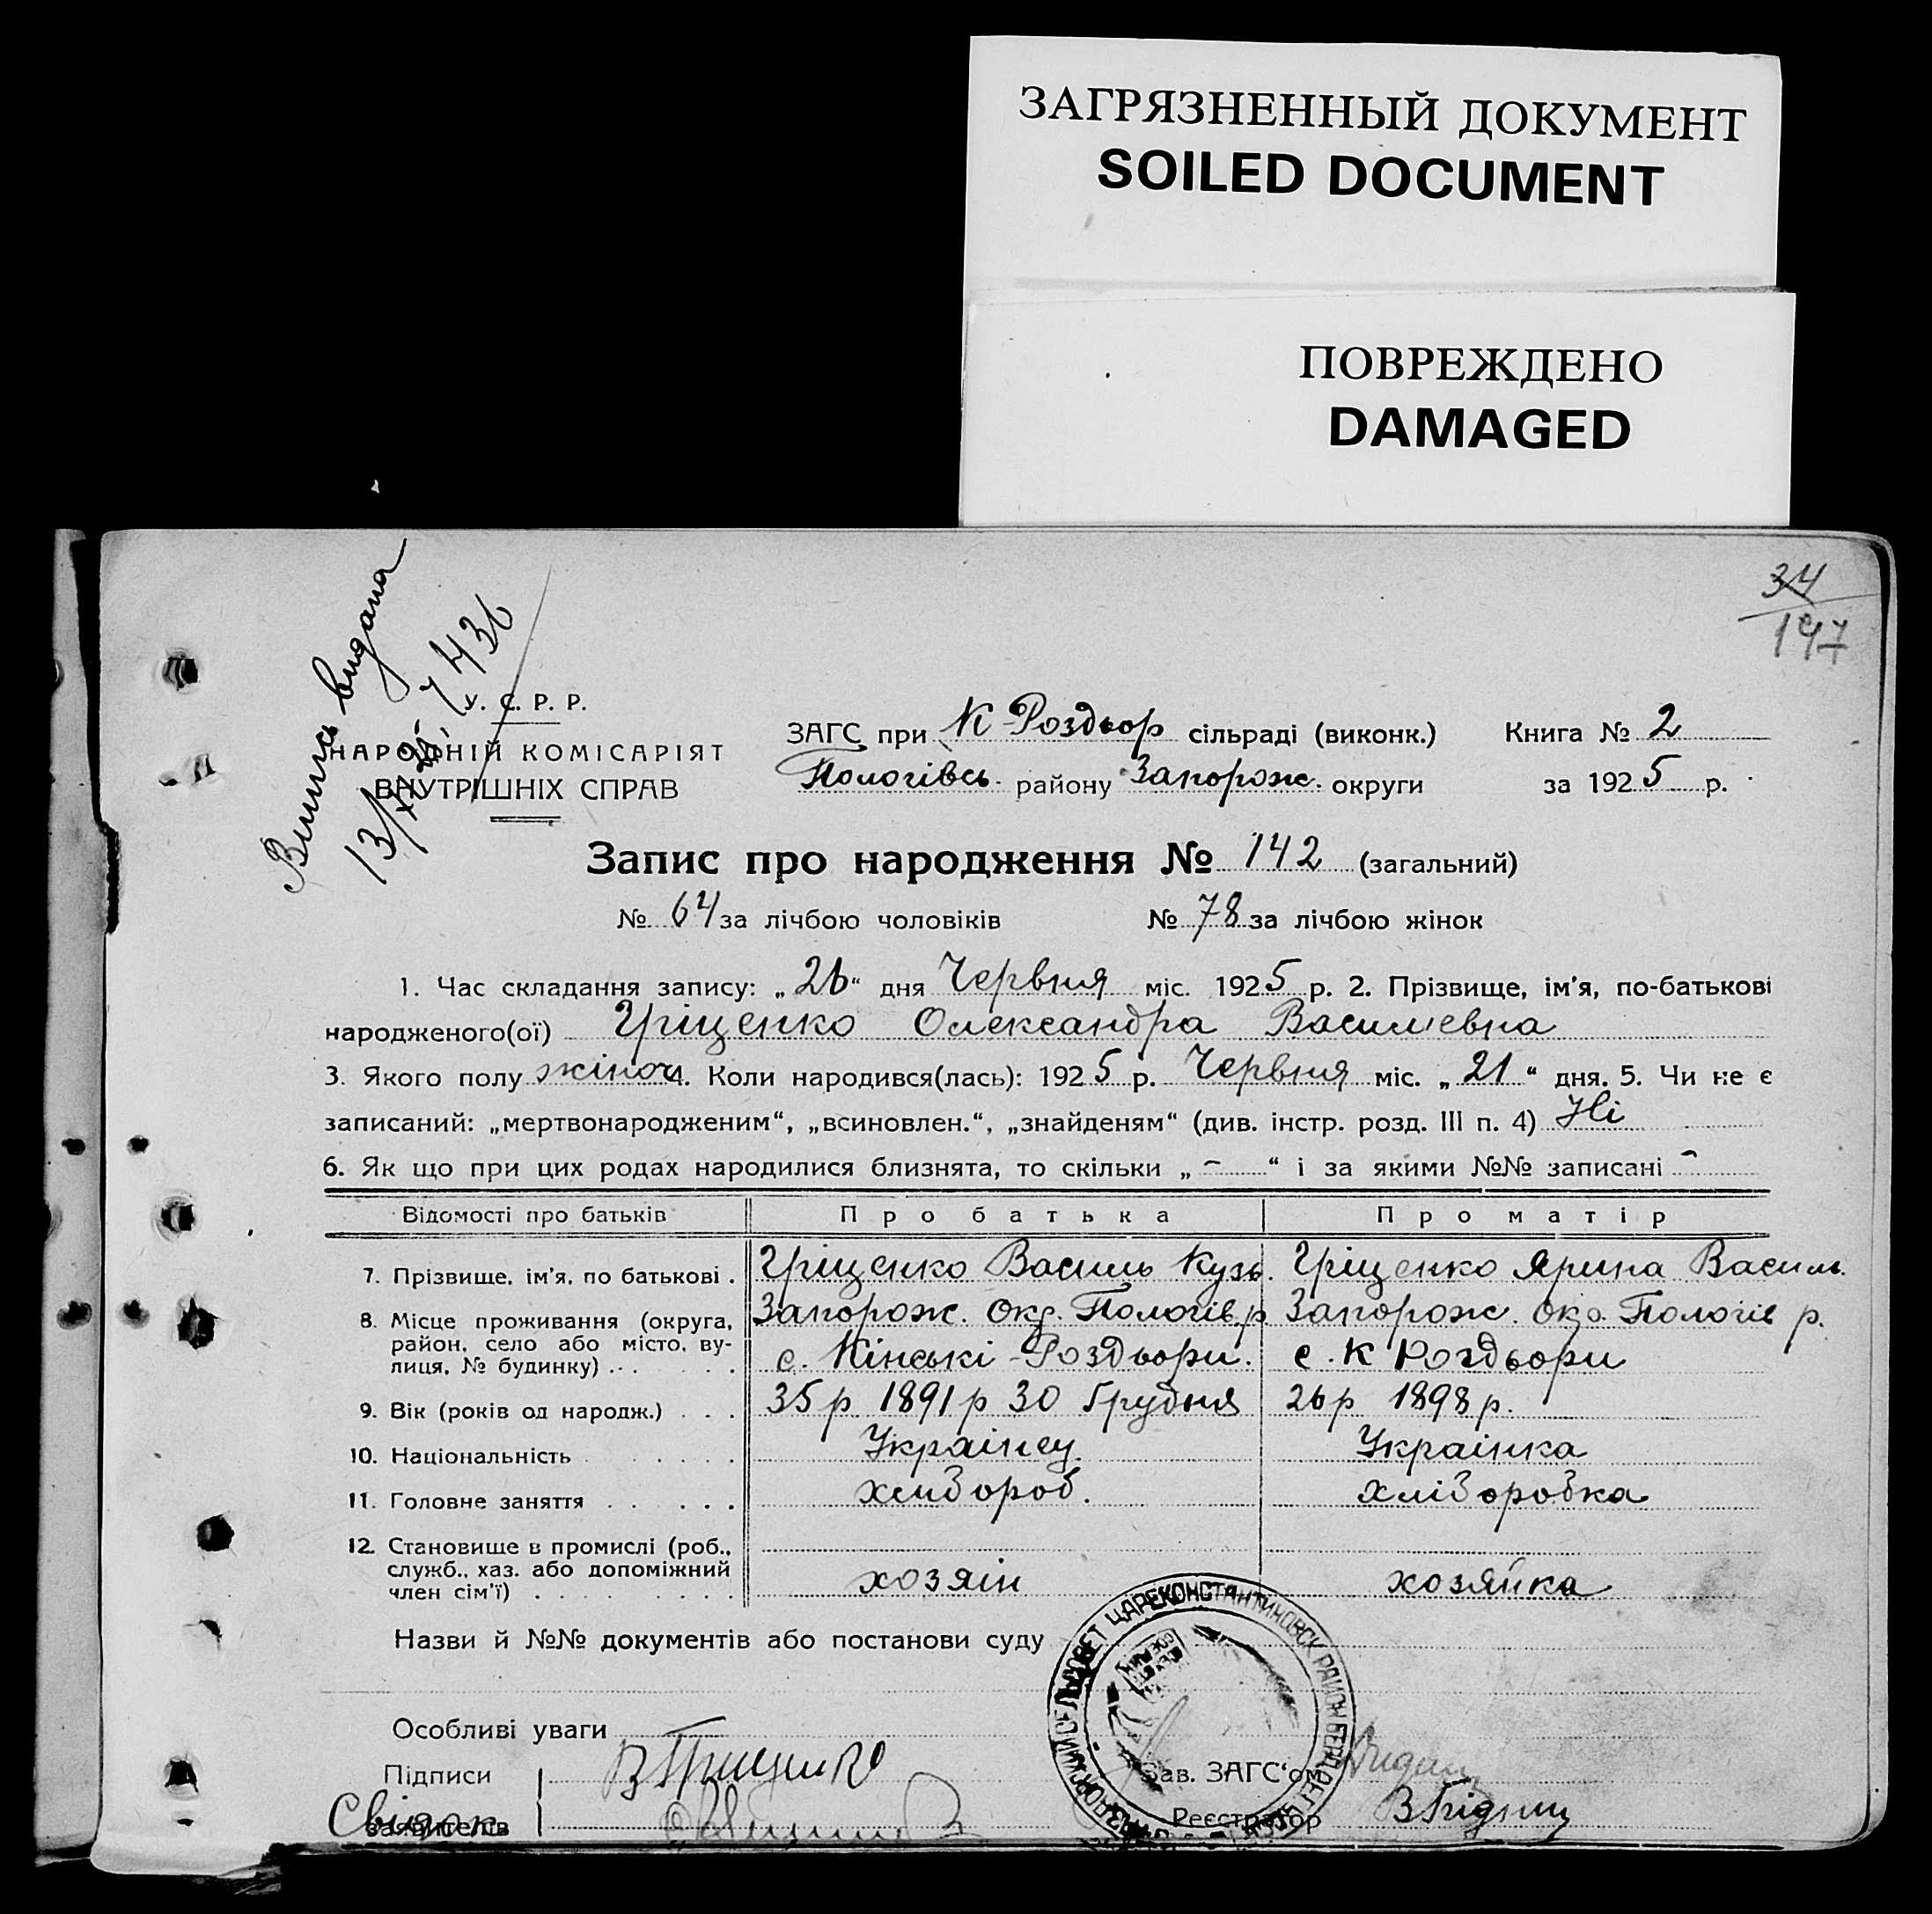 ЗАГРЯЗНЕННЫЙ ДОКУМЕНТ
SOILED DOCUMENT
ПОВРЕЖДЕНО
DAMAGED
34
147
Випись видана
У. С. Р. Р.
НАРОДНІЙ КОМІСАРІЯТ
ВНУТРІШНІХ СПРАВ
ЗАГС при К-Роздьор сільраді (виконк.) Книга № 2
Пологівсь. району Запорож. округи за 1925 р.
Запис про народження № 142 (загальний)
№ 64 за лічбою чоловіків № 78 за лічбою жінок
1. Час складання запису: „26“ дня Червня міс. 1925 р. 2. Прізвище, ім'я, по-батькові
народженого(ої) Гріщенко Олександра Василіевна
3. Якого полу жіноч 4. Коли народився(лась): 1925 р. Червня міс. „21“ дня. 5. Чи не є
записаний: „мертвонародженим“, „всиновлен.“, „знайденям“ (див. інстр. розд. III п. 4) Ні
6. Як що при цих родах народилися близнята, то скільки „-“ і за якими №№ записані -
Відомості про батьків Про батька Про матір
7. Прізвище, ім'я, по батькові . Гріщенко Василь Кузь. Гріщенко Ярина Василь.
8. Місце проживання (округа, Запорож. Окр. Пологів. р Запорож. окр. Пологів р.
район, село або місто, ву-
лиця, № будинку) . . . с. Кінські-Роздьори. с. К Роздьори
9. Вік (років од народж.) . . . 35 р 1891 р 30 Грудня 26 р 1898 р.
10. Національність . . . . . Українец Українка
11. Головне заняття . . . . . хлібороб. хліборобка
12. Становище в промислі (роб.,
служб., хаз. або допоміжний
член сім'ї) . . . . . . . хозяін хозяйка
Назви й №№ документів або постанови суду
Особливі уваги
Підписи
Зав. ЗАГС'ом
Свідок
заявителів
Реєстратор
ЦАРЕКОНСТАНТИНОВСК РАЙОН